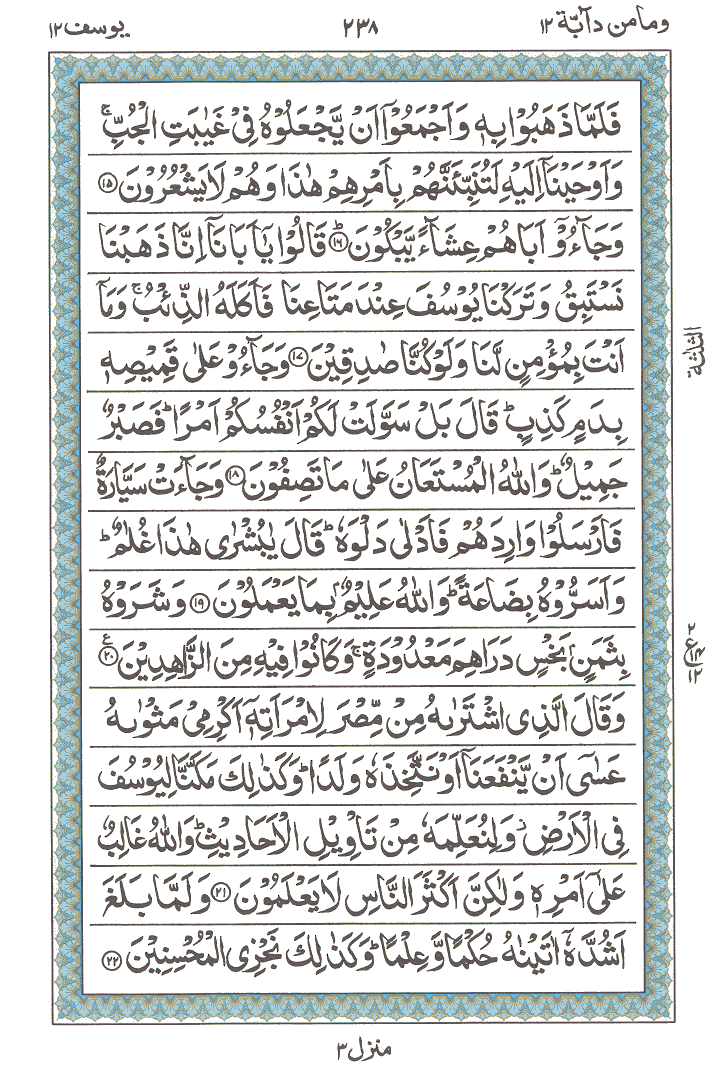 وما من دآبّة ١٢
٢٣٨
يوسف ١٢
فَلَمَّا ذَهَبُوْا بِهٖ وَاَجْمَعُوْۤا اَنْ يَّجْعَلُوْهُ فِيْ غَيٰبَتِ الْجُبِّ ۚ
وَاَوْحَيْنَاۤ اِلَيْهِ لَتُنَبِّئَنَّهُمْ بِاَمْرِهِمْ هٰذَا وَهُمْ لَا يَشْعُرُوْنَ ۝١٥
وَجَآءُوْۤ اَبَاهُمْ عِشَآءً يَّبْكُوْنَ ۝١٦ؕ قَالُوْا يٰۤاَبَانَاۤ اِنَّا ذَهَبْنَا
نَسْتَبِقُ وَتَرَكْنَا يُوْسُفَ عِنْدَ مَتَاعِنَا فَاَكَلَهُ الذِّئْبُ ۚ وَمَاۤ
اَنْتَ بِمُؤْمِنٍ لَّنَا وَلَوْ كُنَّا صٰدِقِيْنَ ۝١٧ وَجَآءُوْ عَلٰى قَمِيْصِهٖ
بِدَمٍ كَذِبٍ ؕ قَالَ بَلْ سَوَّلَتْ لَكُمْ اَنْفُسُكُمْ اَمْرًا ؕ فَصَبْرٌ
جَمِيْلٌ ؕ وَاللّٰهُ الْمُسْتَعَانُ عَلٰى مَا تَصِفُوْنَ ۝١٨ وَجَآءَتْ سَيَّارَةٌ
فَاَرْسَلُوْا وَارِدَهُمْ فَاَدْلٰى دَلْوَهٗ ؕ قَالَ يٰبُشْرٰى هٰذَا غُلٰمٌ ؕ
وَاَسَرُّوْهُ بِضَاعَةً ؕ وَاللّٰهُ عَلِيْمٌۢ بِمَا يَعْمَلُوْنَ ۝١٩ وَشَرَوْهُ
بِثَمَنٍۭ بَخْسٍ دَرَاهِمَ مَعْدُوْدَةٍ ۚ وَكَانُوْا فِيْهِ مِنَ الزَّاهِدِيْنَ ۝٢٠ ع
وَقَالَ الَّذِى اشْتَرٰىهُ مِنْ مِّصْرَ لِامْرَاَتِهٖۤ اَكْرِمِيْ مَثْوٰىهُ
عَسٰۤى اَنْ يَّنْفَعَنَاۤ اَوْ نَتَّخِذَهٗ وَلَدًا ؕ وَكَذٰلِكَ مَكَّنَّا لِيُوْسُفَ
فِى الْاَرْضِ ؗ وَلِنُعَلِّمَهٗ مِنْ تَاْوِيْلِ الْاَحَادِيْثِ ؕ وَاللّٰهُ غَالِبٌ
عَلٰۤى اَمْرِهٖ وَلٰكِنَّ اَكْثَرَ النَّاسِ لَا يَعْلَمُوْنَ ۝٢١ وَلَمَّا بَلَغَ
اَشُدَّهٗۤ اٰتَيْنٰهُ حُكْمًا وَّعِلْمًا ؕ وَكَذٰلِكَ نَجْزِى الْمُحْسِنِيْنَ ۝٢٢
الثلثة
٢
ع١٤
١٢
منزل ٣